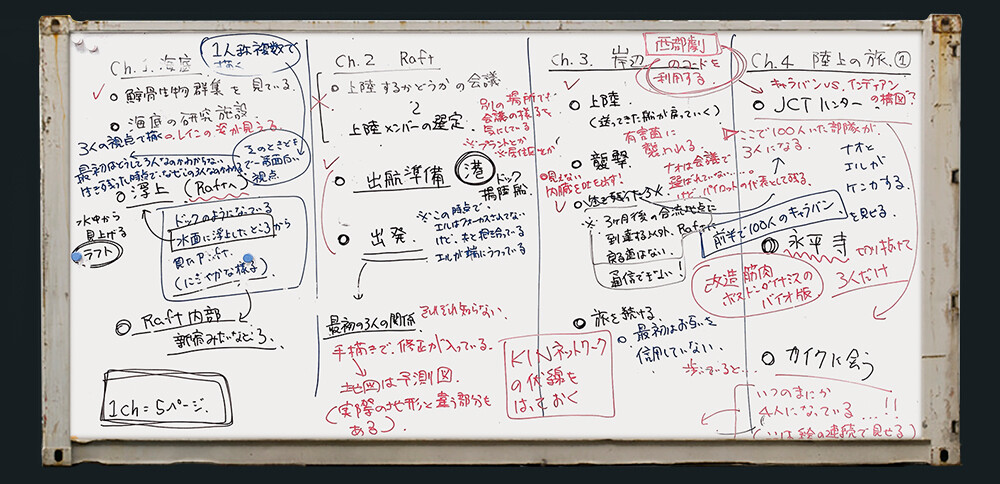 Ch.1. 海底
1人称複数で
描く
✓ ○ 解骨性物群集を見ている。
○ 海底の研究施設
3人の視点で描く
レインの姿が見える
最初はどうして3人なのかわからない
視点
○ 浮上 (Raftへ)
水中から
見上げる
ラフト
ドックのようになっている
水面に浮上したところから
(にぎやかな様子)
○ Raft内部
新宿みたいなところ。
1ch=5ページ.
Ch.2 Raft
○ 上陸するかどうかの会議
上陸メンバーの選定.
別の場所で
会議の様子を
気にしている
※プラントとか
◎ 出航準備
港
ドック
揚陸船.
◎ 出発.
※この時点で
エルはフォーカスされてない
エルが端にうつっている
最初の3人の関係
それぞれ知らない
手描きで、修正が入っている.
地図は予測図.
(実際の地形と違う部分も
ある)
Ch.3. 岸辺
西部劇
のコードを
利用する.
○ 上陸.
(送ってきた船が戻っていく)
有害菌に
襲われる.
◎ 襲撃
※見えない
内臓を吐き出す!
ナオは会議で
選ばれていない......
けど、パイロットの代表として残る
○ 生き残った3人
※3ヶ月後の合流地点に
到達する以外、Raftに
戻る道はない.
通信できない!
◎ 旅を続ける.
○ 最初はお互いを
信用していない.
歩いていると...
KINネットワーク
の伏線を
はっておく
Ch.4 陸上の旅.①
キャラバンvs.インディアン
の構図?
○ JCTハンター
ここで100人いた部隊が、
3人になる.
ナオと
エルが
ケンカする.
前半で100人のキャラバン
を見せる.
◎ 永平寺
切り抜けて
3人だけ
改造筋肉
ボストンダイナミクスの
バイオ版.
○ カイクに会う
いつのまにか
4人になっている...!!
(は絵の連続で見せる)